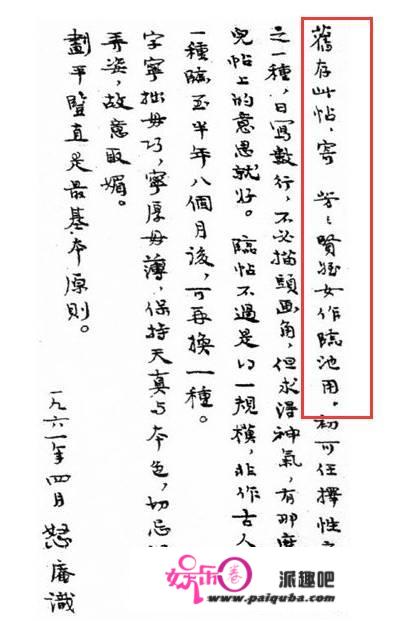 舊存此帖，寄 芳〻賢姪女作臨池用。初可任擇性
之一種，日寫數行，不必描頭画角，但求得神氣，有那麼
兒帖上的意思就好。臨帖不過是得一規模，非作古人
一種臨至半年八個月後，可再換一種。
字寧拙毋巧，寧厚毋薄，保持天真与本色，切忌
弄姿，故意取媚。
劃平豎直是最基本原則。
一九六一年四月 怒庵識
娱乐卷
派趣吧
www.paiquba.com